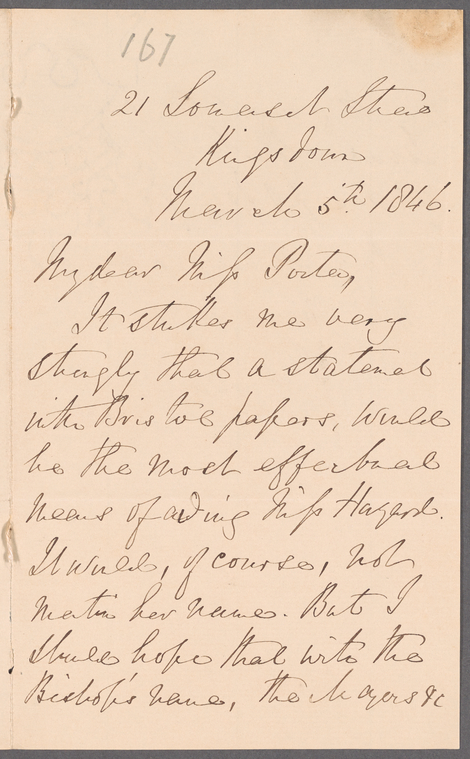 167
21 Somerset Street
Kingsdown
March 5th 1846.
My dear Miss Porter,
It strikes me very
strongly that a statement
in the Bristol papers, would
be the most effectual
means of aiding Miss Hazard.
It would, of course, not
mention her name. But I
should hope that with the
Bishop's name, the Mayors &c